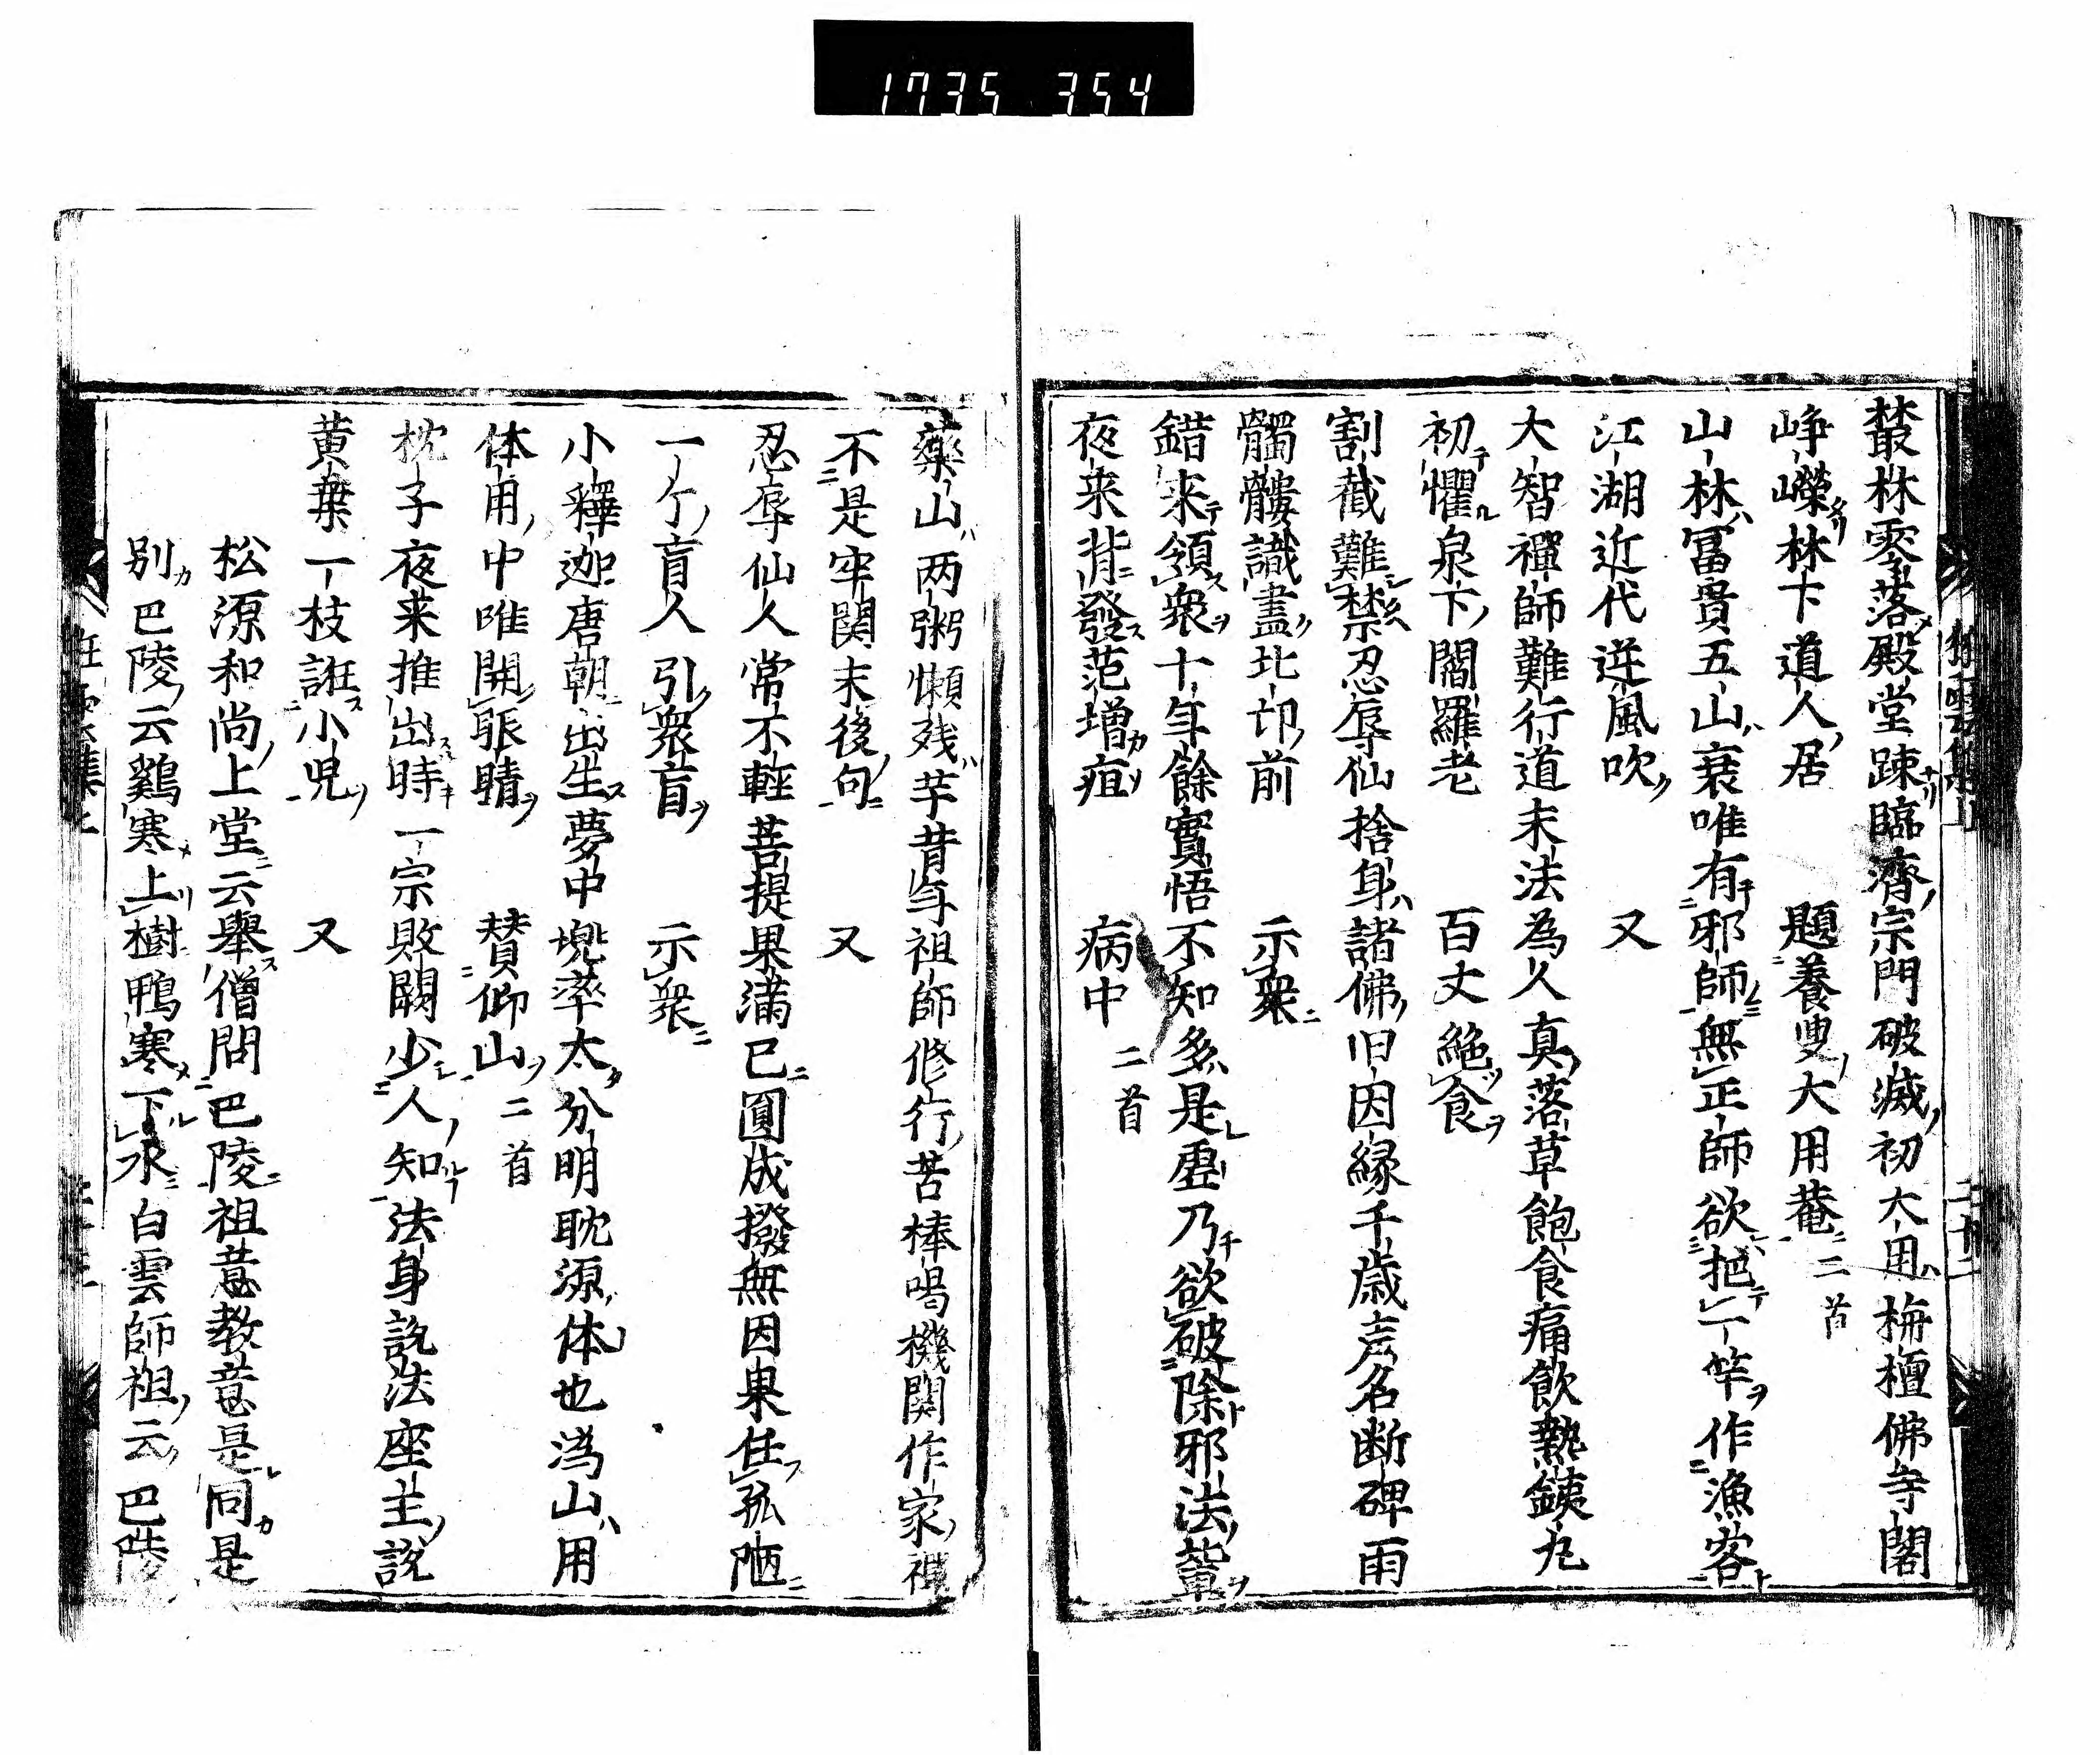 1735 354
叢林零落殿堂疎臨濟宗門破滅初大用栴檀佛寺閣
崢嶸林下道人居　題養叟大用菴二首
山林冨貴五山衰唯有邪師無正師欲把一竿作漁客
江湖近代逆風吹　又
大智禪師難行道末法為人真落草飽食痛飲熱鉄丸
初懼泉下閻羅老　百丈絶食
割截難禁忍辱仙捨身諸佛旧因縁千歳声名断碑雨
髑髏識盡北邙前　示衆
錯来領衆十年餘實悟不知多是虚乃欲破除邪法輩
夜来背發范増疽　病中二首
藥山两粥懶残芋昔年祖師修行苦棒喝機関作家禅
不是牢関末後句　又
忍辱仙人常不輕菩提果滿已圓成撥無因果任孤陋
一个盲人引衆盲　示衆
小釋迦唐朝出生夢中兜率太分明耽源体也溈山用
体用中唯開眼睛　賛仰山二首
枕子夜来推出時一宗敗闕少人知法身説法座主説
黄葉一枝誑小児　又
松源和尚上堂云舉僧問巴陵祖意教意是同是
別巴陵云鷄寒上樹鴨寒下水白雲師祖云巴陵
狂雲集上